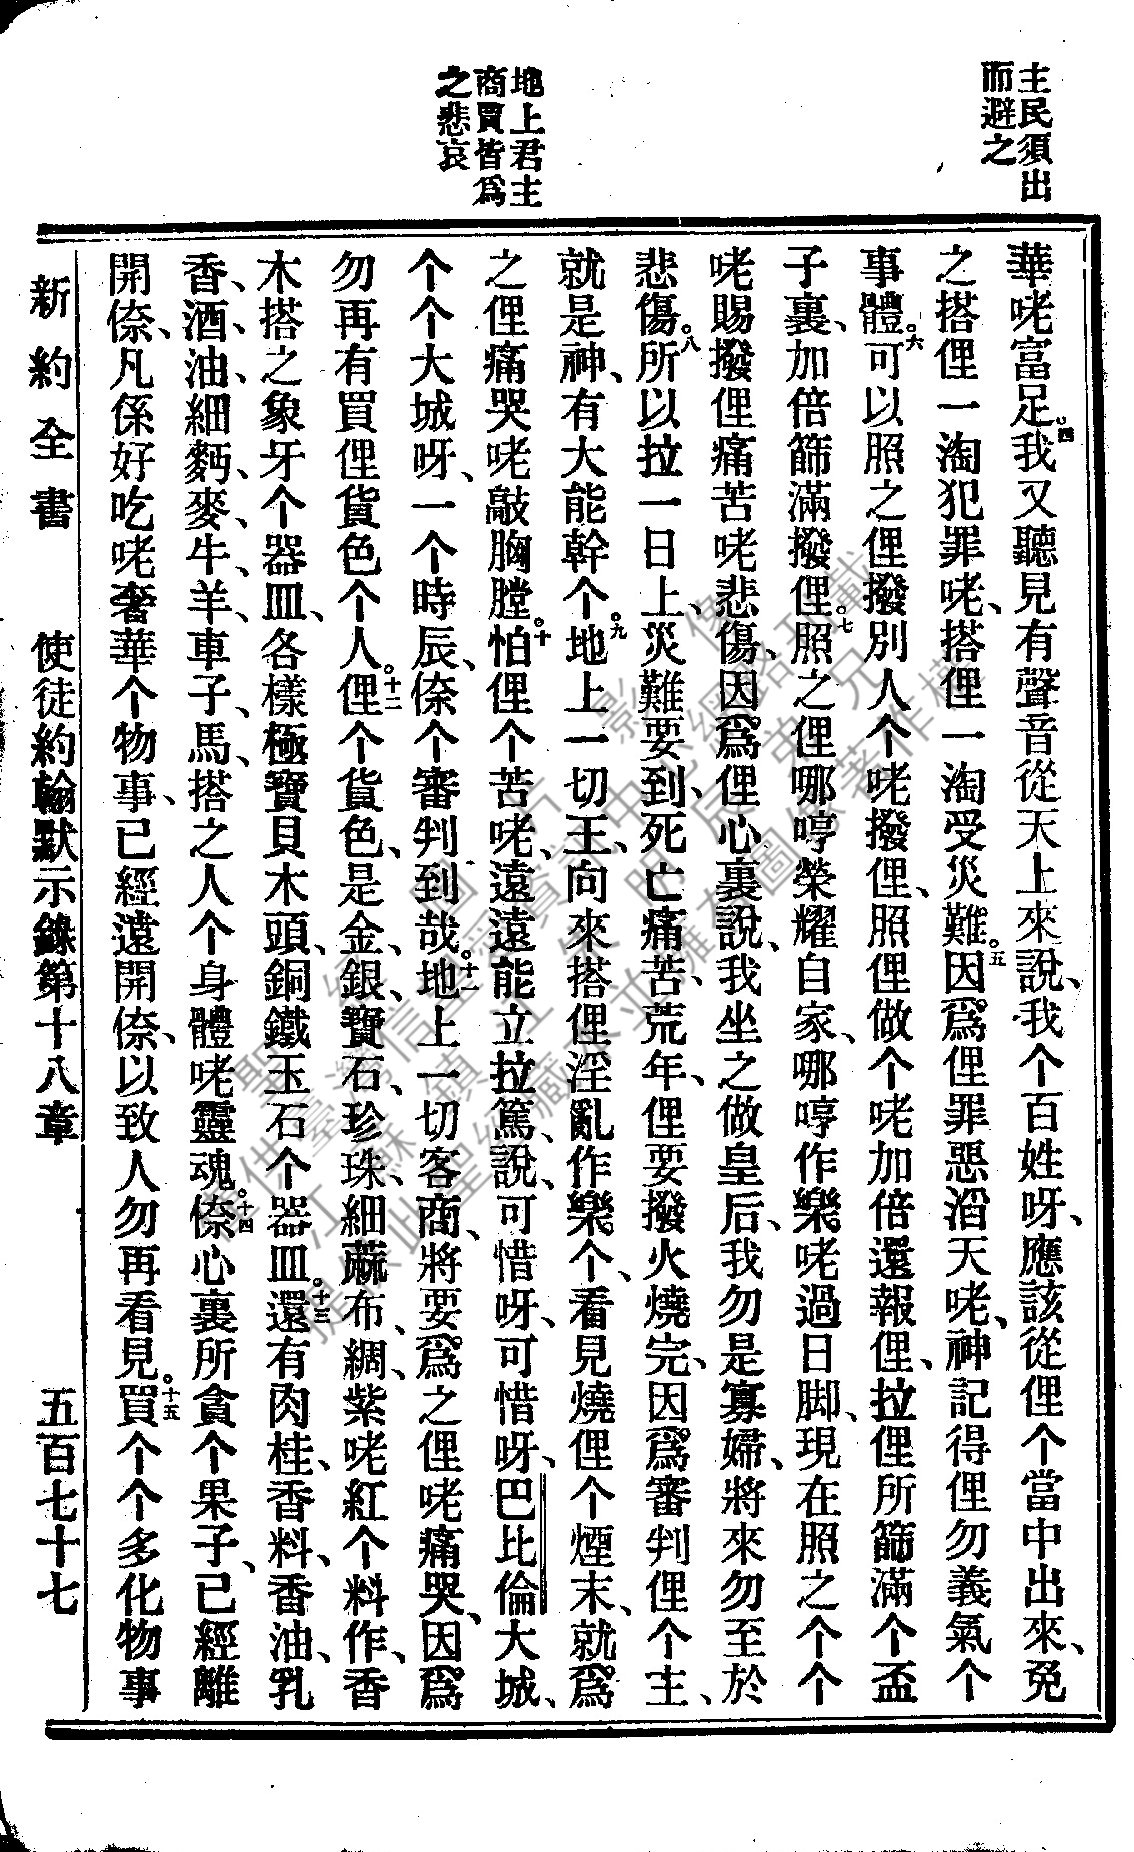 主民須出
而避之
地上君主
商賈皆爲
之悲哀
華咾富足。四我又聽見有聲音從天上來說、我个百姓呀、應該從俚个當中出來、免
之搭俚一淘犯罪咾、搭俚一淘受災難。五因爲俚罪惡滔天咾、神記得俚勿義氣个
事體。六可以照之俚撥別人个咾撥俚、照俚做个咾加倍還報俚、拉俚所篩滿个盃
子裏、加倍篩滿撥俚。七照之俚哪哼榮耀自家、哪哼作樂咾過日脚、現在照之个个
咾賜撥俚痛苦咾悲傷、因爲俚心裏說、我坐之做皇后、我勿是寡婦、將來勿至於
悲傷。八所以拉一日上、災難要到、死亡痛苦、荒年、俚要撥火燒完、因爲審判俚个主、
就是神、有大能幹个。九地上一切王、向來搭俚淫亂作樂个、看見燒俚个煙末、就爲
之俚痛哭咾敲胸膛。十怕俚个苦咾、遠遠能立拉篤、說、可惜呀、可惜呀、巴比倫大城、
个个大城呀、一个時辰、倷个審判到哉。十一地上一切客商、將要爲之俚咾痛哭、因爲
勿再有買俚貨色个人。十二俚个貨色、是金、銀、寶石、珍珠、細蔴布、綢、紫咾紅个料作、香
木搭之象牙个器皿、各樣極寶貝木頭、銅鐵玉石个器皿。十三還有肉桂、香料、香油、乳
香、酒、油、細麪、麥、牛、羊、車子、馬、搭之人个身體咾靈魂。十四倷心裏所貪个果子、已經離
開倷、凡係好吃咾奢華个物事、已經遠開倷、以致人勿再看見。十五買个个多化物事
新約全書　使徒約翰默示錄第十八章　五百七十七
聖經圖片影像
提供臺灣信望愛資訊中心網路下載
江蘇鎮江侯明辰弟兄
提供此聖經藏本並擁有圖像著作權